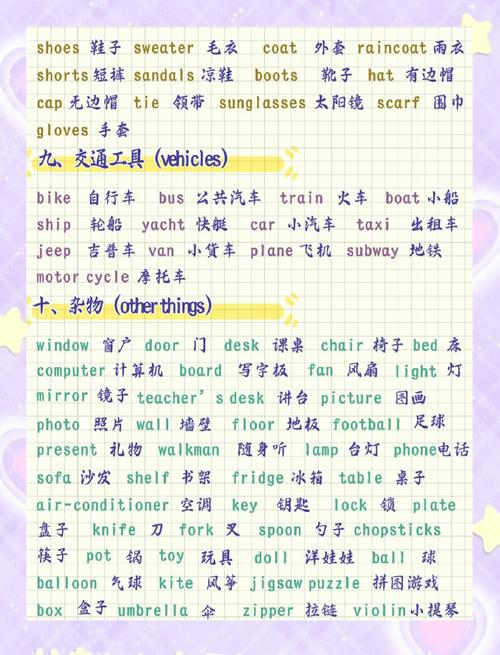 shoes 鞋子 sweater 毛衣 coat 外套 raincoat 雨衣
shorts 短裤 sandals 凉鞋 boots 靴子 hat 有边帽
cap 无边帽 tie 领带 sunglasses 太阳镜 scarf 围巾
gloves 手套
九、交通工具 (vehicles)
bike 自行车 bus 公共汽车 train 火车 boat 小船
ship 轮船 yacht 快艇 car 小汽车 taxi 出租车
jeep 吉普车 van 小货车 plane 飞机 subway 地铁
motor cycle 摩托车
十、杂物 (other things)
window 窗户 door 门 desk 课桌 chair 椅子 bed 床
computer 计算机 board 写字板 fan 风扇 light 灯
mirror 镜子 teacher's desk 讲台 picture 图画
photo 照片 wall 墙壁 floor 地板 football 足球
present 礼物 walkman 随身听 lamp 台灯 phone 电话
sofa 沙发 shelf 书架 fridge 冰箱 table 桌子
air-conditioner 空调 key 钥匙 lock 锁 plate
盘子 knife 刀 fork 叉 spoon 勺子 chopsticks
筷子 pot 锅 toy 玩具 doll 洋娃娃 ball 球
balloon 气球 kite 风筝 jigsaw puzzle 拼图游戏
box 盒子 umbrella 伞 zipper 拉链 violin 小提琴